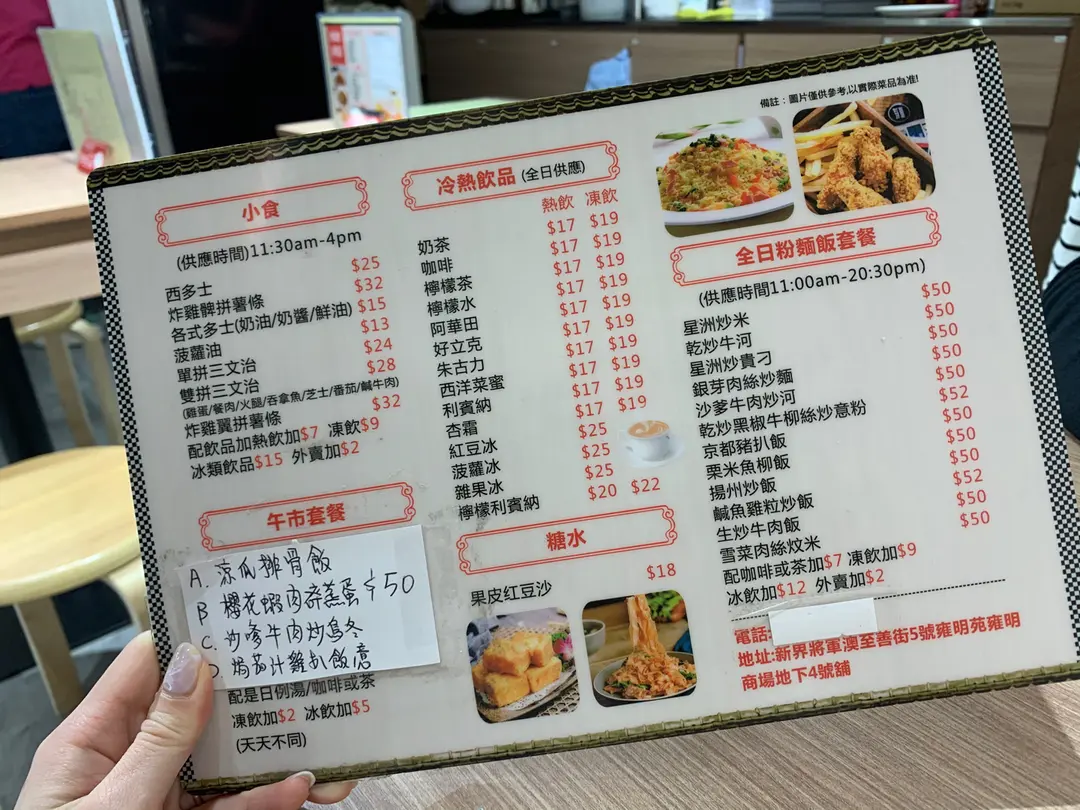 小食
(供應時間)11:30am-4pm
西多士 $25
炸雞髀拼薯條 $32
各式多士(奶油/奶醬/鮮油) $15
菠蘿油 $13
單拼三文治 $24
雙拼三文治 $28
(雞蛋/餐肉/火腿/吞拿魚/芝士/番茄/鹹牛肉)
炸雞翼拼薯條 $32
配飲品加熱飲加$7 凍飲$9
冰類飲品$15 外賣加$2
午市套餐
A. 涼瓜排骨飯
B 櫻花蝦肉碎蒸蛋 $50
C. 沙嗲牛肉炒烏冬
D. 焗茄汁雞扒飯意
配是日例湯/咖啡或茶
凍飲加$2 冰飲加$5
(天天不同)
冷熱飲品 (全日供應)
熱飲 凍飲
奶茶 $17 $19
咖啡 $17 $19
檸檬茶 $17 $19
檸檬水 $17 $19
阿華田 $17 $19
好立克 $17 $19
朱古力 $17 $19
西洋菜蜜 $17 $19
利賓納 $17 $19
杏霜 $17 $19
紅豆冰 $25
菠蘿冰 $25
雜果冰 $25
檸檬利賓納 $20 $22
糖水
果皮红豆沙 $18
備註：圖片僅供參考,以實際菜品為准!
全日粉麵飯套餐
(供應時間11:00am-20:30pm)
星洲炒米 $50
乾炒牛河 $50
星洲炒貴刁 $50
銀芽肉絲炒麵 $50
沙爹牛肉炒河 $50
乾炒黑椒牛柳絲炒意粉 $52
京都豬扒飯 $50
栗米魚柳飯 $50
揚州炒飯 $50
鹹魚雞粒炒飯 $52
生炒牛肉飯 $50
雪菜肉絲炆米 $50
配咖啡或茶加$7 凍飲加$9
冰飲加$12 外賣加$2
電話:
地址:新界將軍澳至善街5號雍明苑雍明
商場地下4號舖